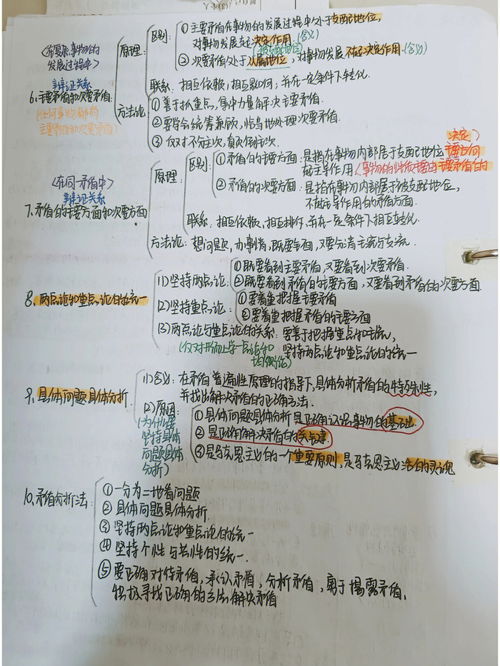 ① 主要矛盾在事物的发展过程中处于支配地位,
对事物发展起决定作用.(含义)
② 次要矛盾处于从属地位,对事物发展不起决定作用.(含义)
区别:
原理:
联系: 相互依赖,相互影响,并在一定条件下转化.
辩证关系
6.主要矛盾和次要矛盾
方法论:
① 善于抓重点,集中力量解决主要矛盾.
② 要学会统筹兼顾,恰当地处理次要矛盾.
③ 反对不分主次,
(在同一矛盾中)
辩证关系
7.矛盾的主要方面和次要方面
原理:
区别:
① 矛盾的主要方面:是指在事物内部居于支配地位
起主导作用
② 矛盾的次要方面:是指在事物内部居于被支配地位,
不起主导作用的矛盾方面.
联系:相互依赖,相互排斥,并在一定条件下相互转化.
方法论: 想问题,办事情,既要全面,又要分清主流与支流.
8.两点论和重点论的统一
(1)坚持两点论:
①既要看到主要矛盾,又要看到次要矛盾.
②既要看到矛盾的主要方面,又要看到矛盾的次要方面
(2)坚持重点论:
①要着重把握主要矛盾
②要着重把握矛盾的主要方面
(3)两点论与重点论的关系:要善于把握重点和主流,
坚持两点论和重点论的统一
9.具体问题具体分析
(1)含义: 在矛盾普遍性原理的指导下,具体分析矛盾的特殊性,
并找出解决矛盾的正确方法.
(2)原理:
(为什么要
坚持具体
问题具体
分析)
①具体问题具体分析是正确认识事物的基础
②是正确解决矛盾的关键
③是马克思主义的一个重要原则,是马克思主义活的灵魂
10.矛盾分析法:
①一分为二地看问题
②具体问题具体分析
③坚持两点论和重点论的统一
④坚持个性与共性的统一.
⑤要正确对待矛盾,承认矛盾,分析矛盾,勇于揭露矛盾,
积极寻找正确的方法解决矛盾